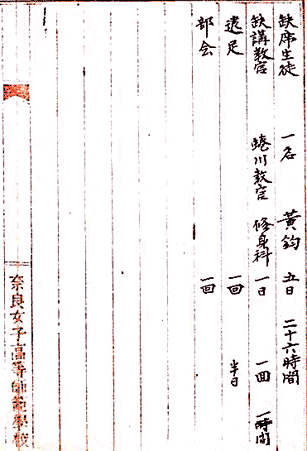 缺席生徒 一名 黃鈞 五日 二十六時間
缺講教官 蜷川教官 修身科 一日 一回 一時間
遠足 一回 半日
部会 一回
奈良女子高等師範學校